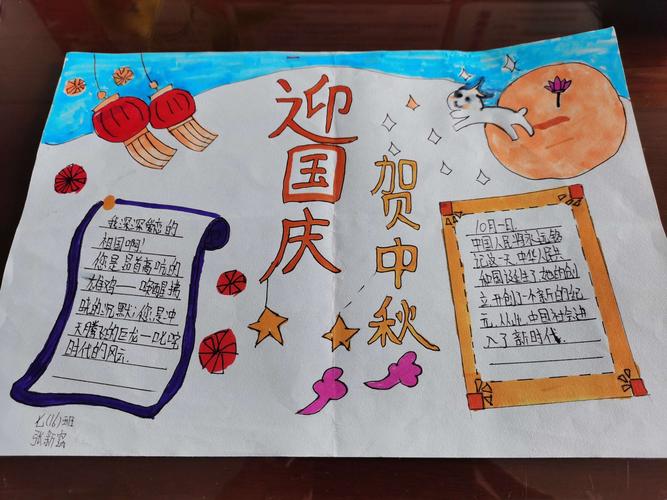 迎国庆
贺中秋
我深深爱恋的
祖国啊!
您是昂首高吭的
雄鸡——唤醒拂
晓的沉默;您是冲
天腾飞的巨龙—叱咤
时代的风云.
10月一日.
中国人民将永远铭
记这一天 中华人民共
和国诞生了她的创
立开创了一个新的纪
元.从此,中国社会进
入了新时代.
七(16)班
张新